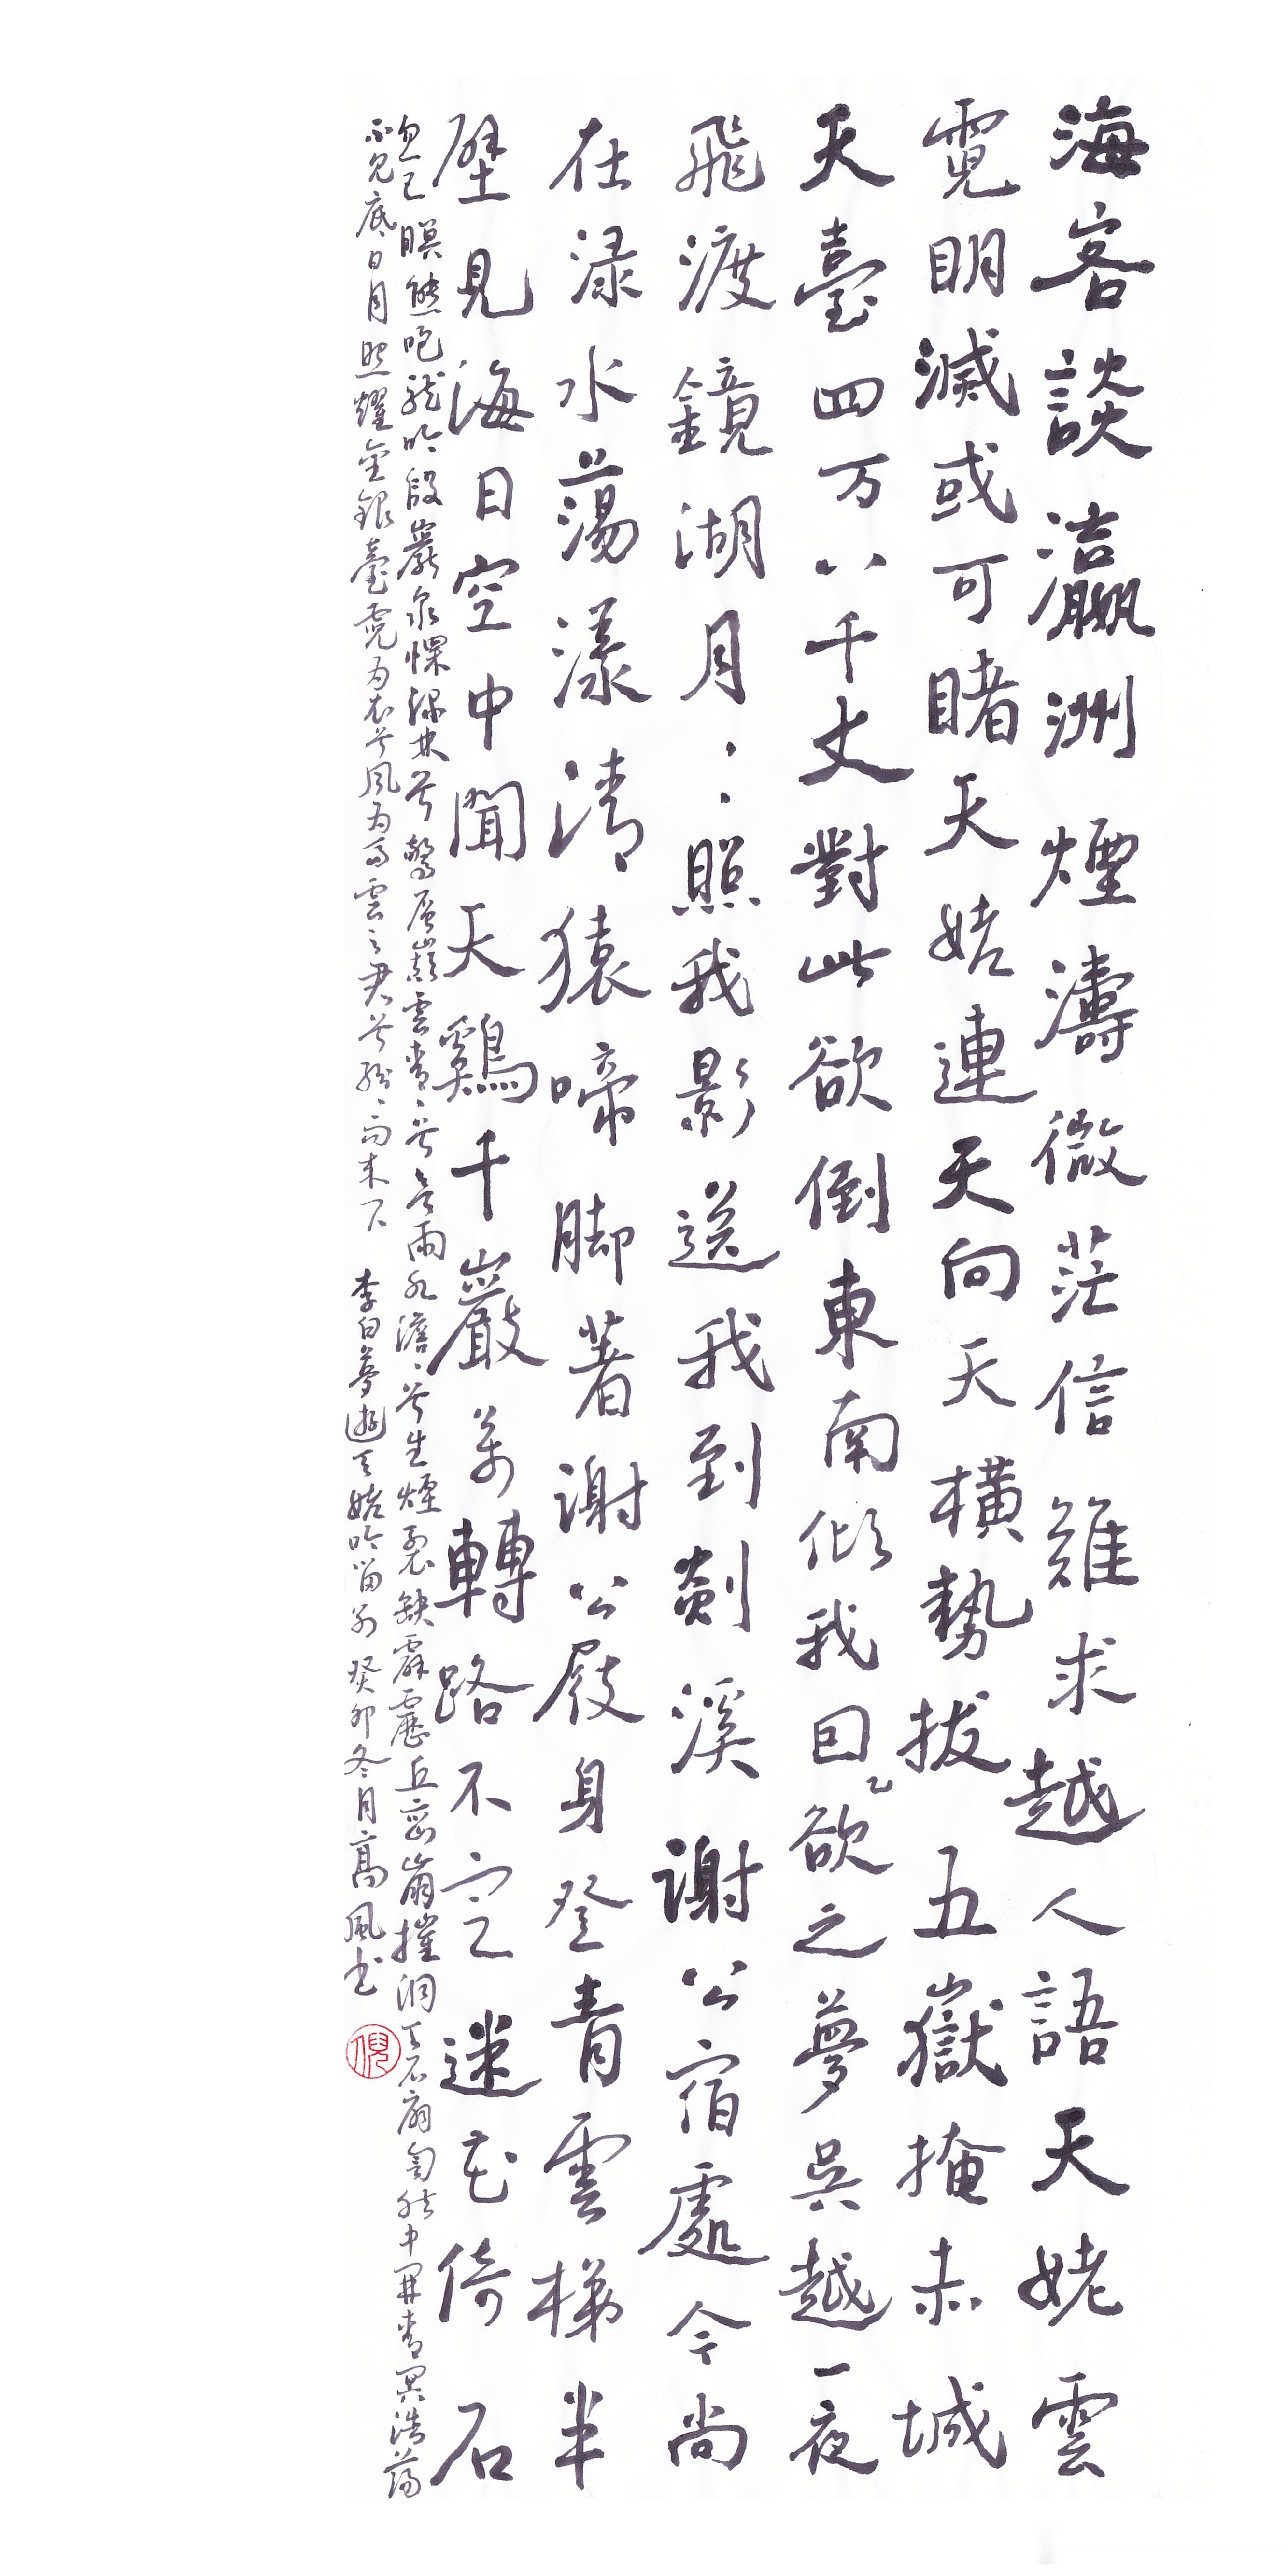 海客談瀛洲煙濤微茫信難求越人語天姥雲
霓明滅或可睹天姥連天向天橫勢拔五嶽掩赤城
天臺四万八千丈對此欲倒東南傾我因欲之夢吳越一夜
飛渡鏡湖月、、照我影送我到剡溪謝公宿處今尚
在渌水蕩漾清猿啼脚著謝公屐身登青雲梯半
壁見海日空中聞天鷄千巖萬轉路不定迷花倚石
忽已暝熊咆龍吟殷巖泉慄深林兮驚層巔雲青、兮欲雨水澹、兮生煙裂缺霹靂丘巒崩摧洞天石扇訇然中開青冥浩蕩
不見底日月照耀金銀臺霓為衣兮風為馬雲之君兮紛、而来下 李白夢遊天姥吟留別 癸卯冬月高風书
倪